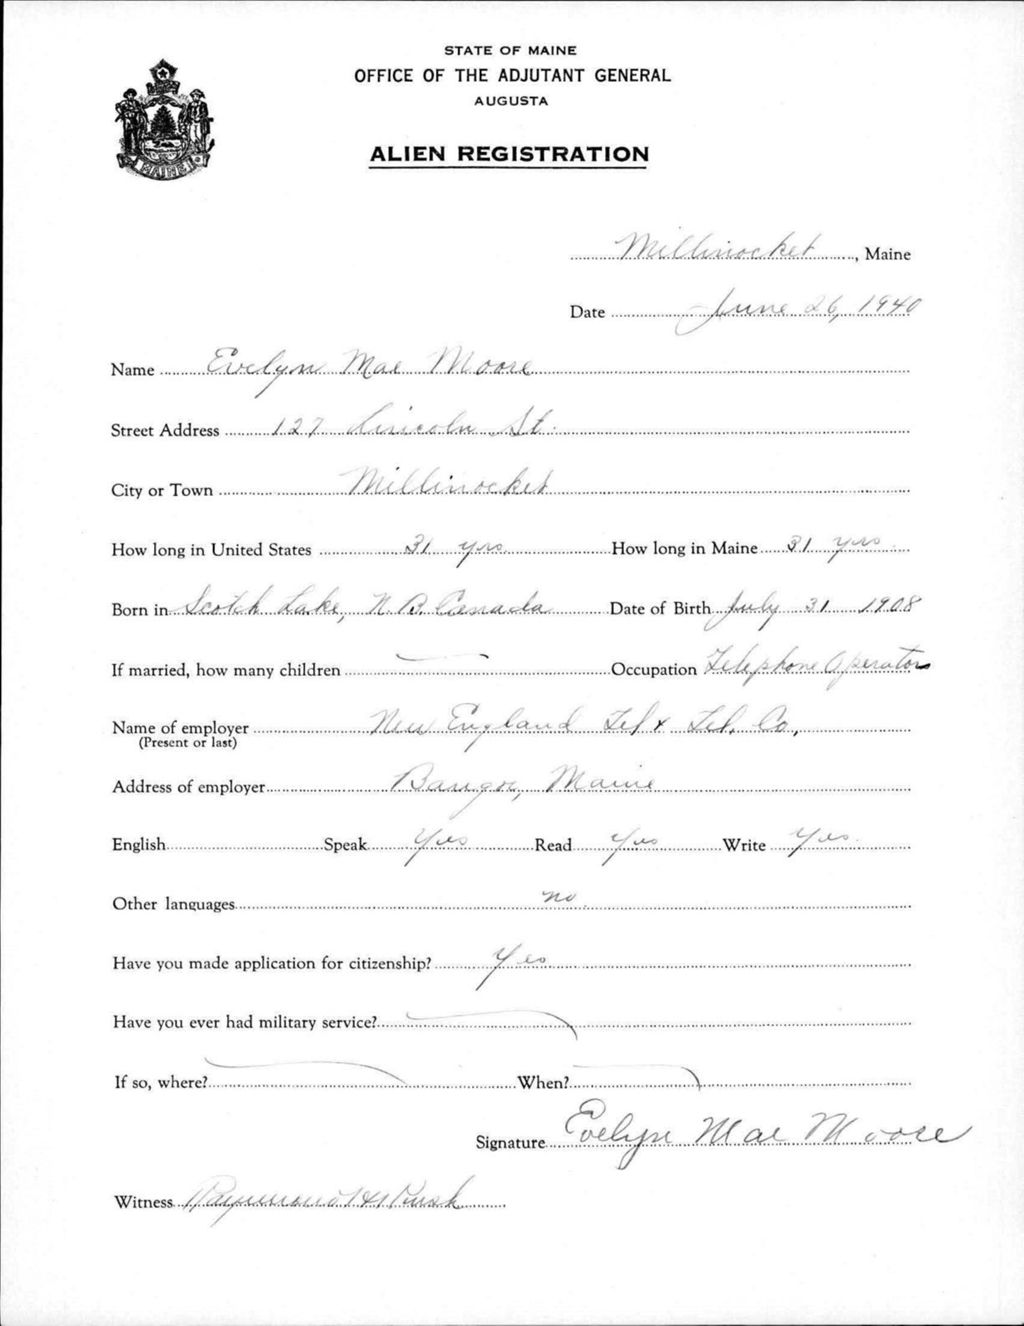 STATE OF MAINE
OFFICE OF THE ADJUTANT GENERAL
AUGUSTA
ALIEN REGISTRATION
MAINE
Millinocket, Maine
Date June 26, 1940
Name Evelyn Mae Moore
Street Address 127 Lincoln St.
City or Town Millinocket
How long in United States 31 yrs How long in Maine 31 yrs
Born in Scotch Lake, N.B. Canada Date of Birth July 31 1908
If married, how many children Occupation Telephone Operator
Name of employer New England Tel & Tel. Co.,
(Present or last)
Address of employer Bangor, Maine
English Speak Yes Read Yes Write Yes.
Other languages no
Have you made application for citizenship? Yes
Have you ever had military service?
If so, where? When?
Signature Evelyn Mae Moore
Witness Raymond H Rush